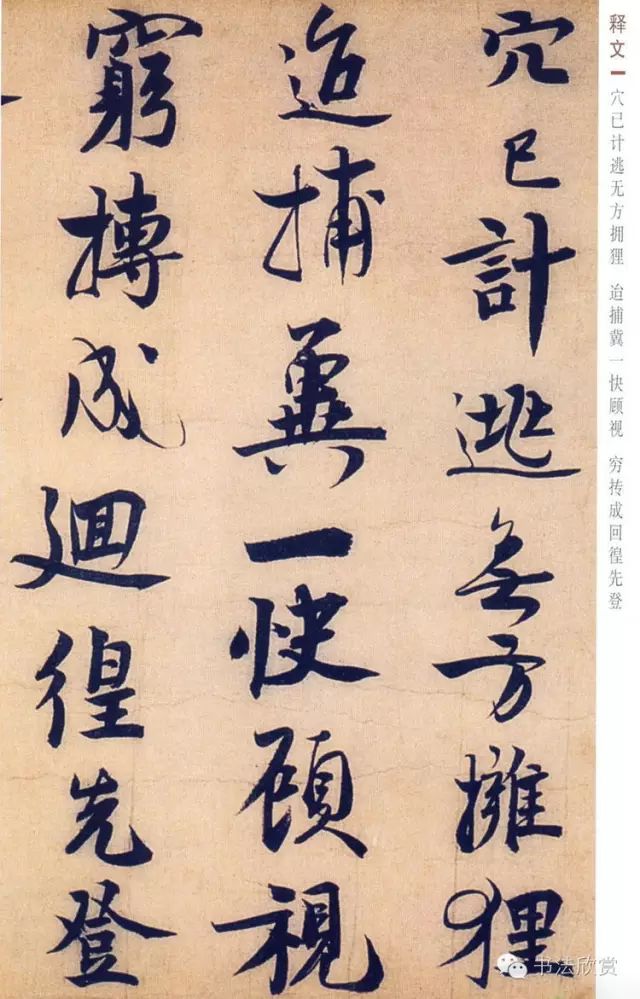 穴已計逃無方擁狸
迨捕冀一快顧視
窮摶成迴徨先登
释文 穴已计逃无方拥狸 迨捕冀一快顾视 穷抟成回徨先登
书法欣赏